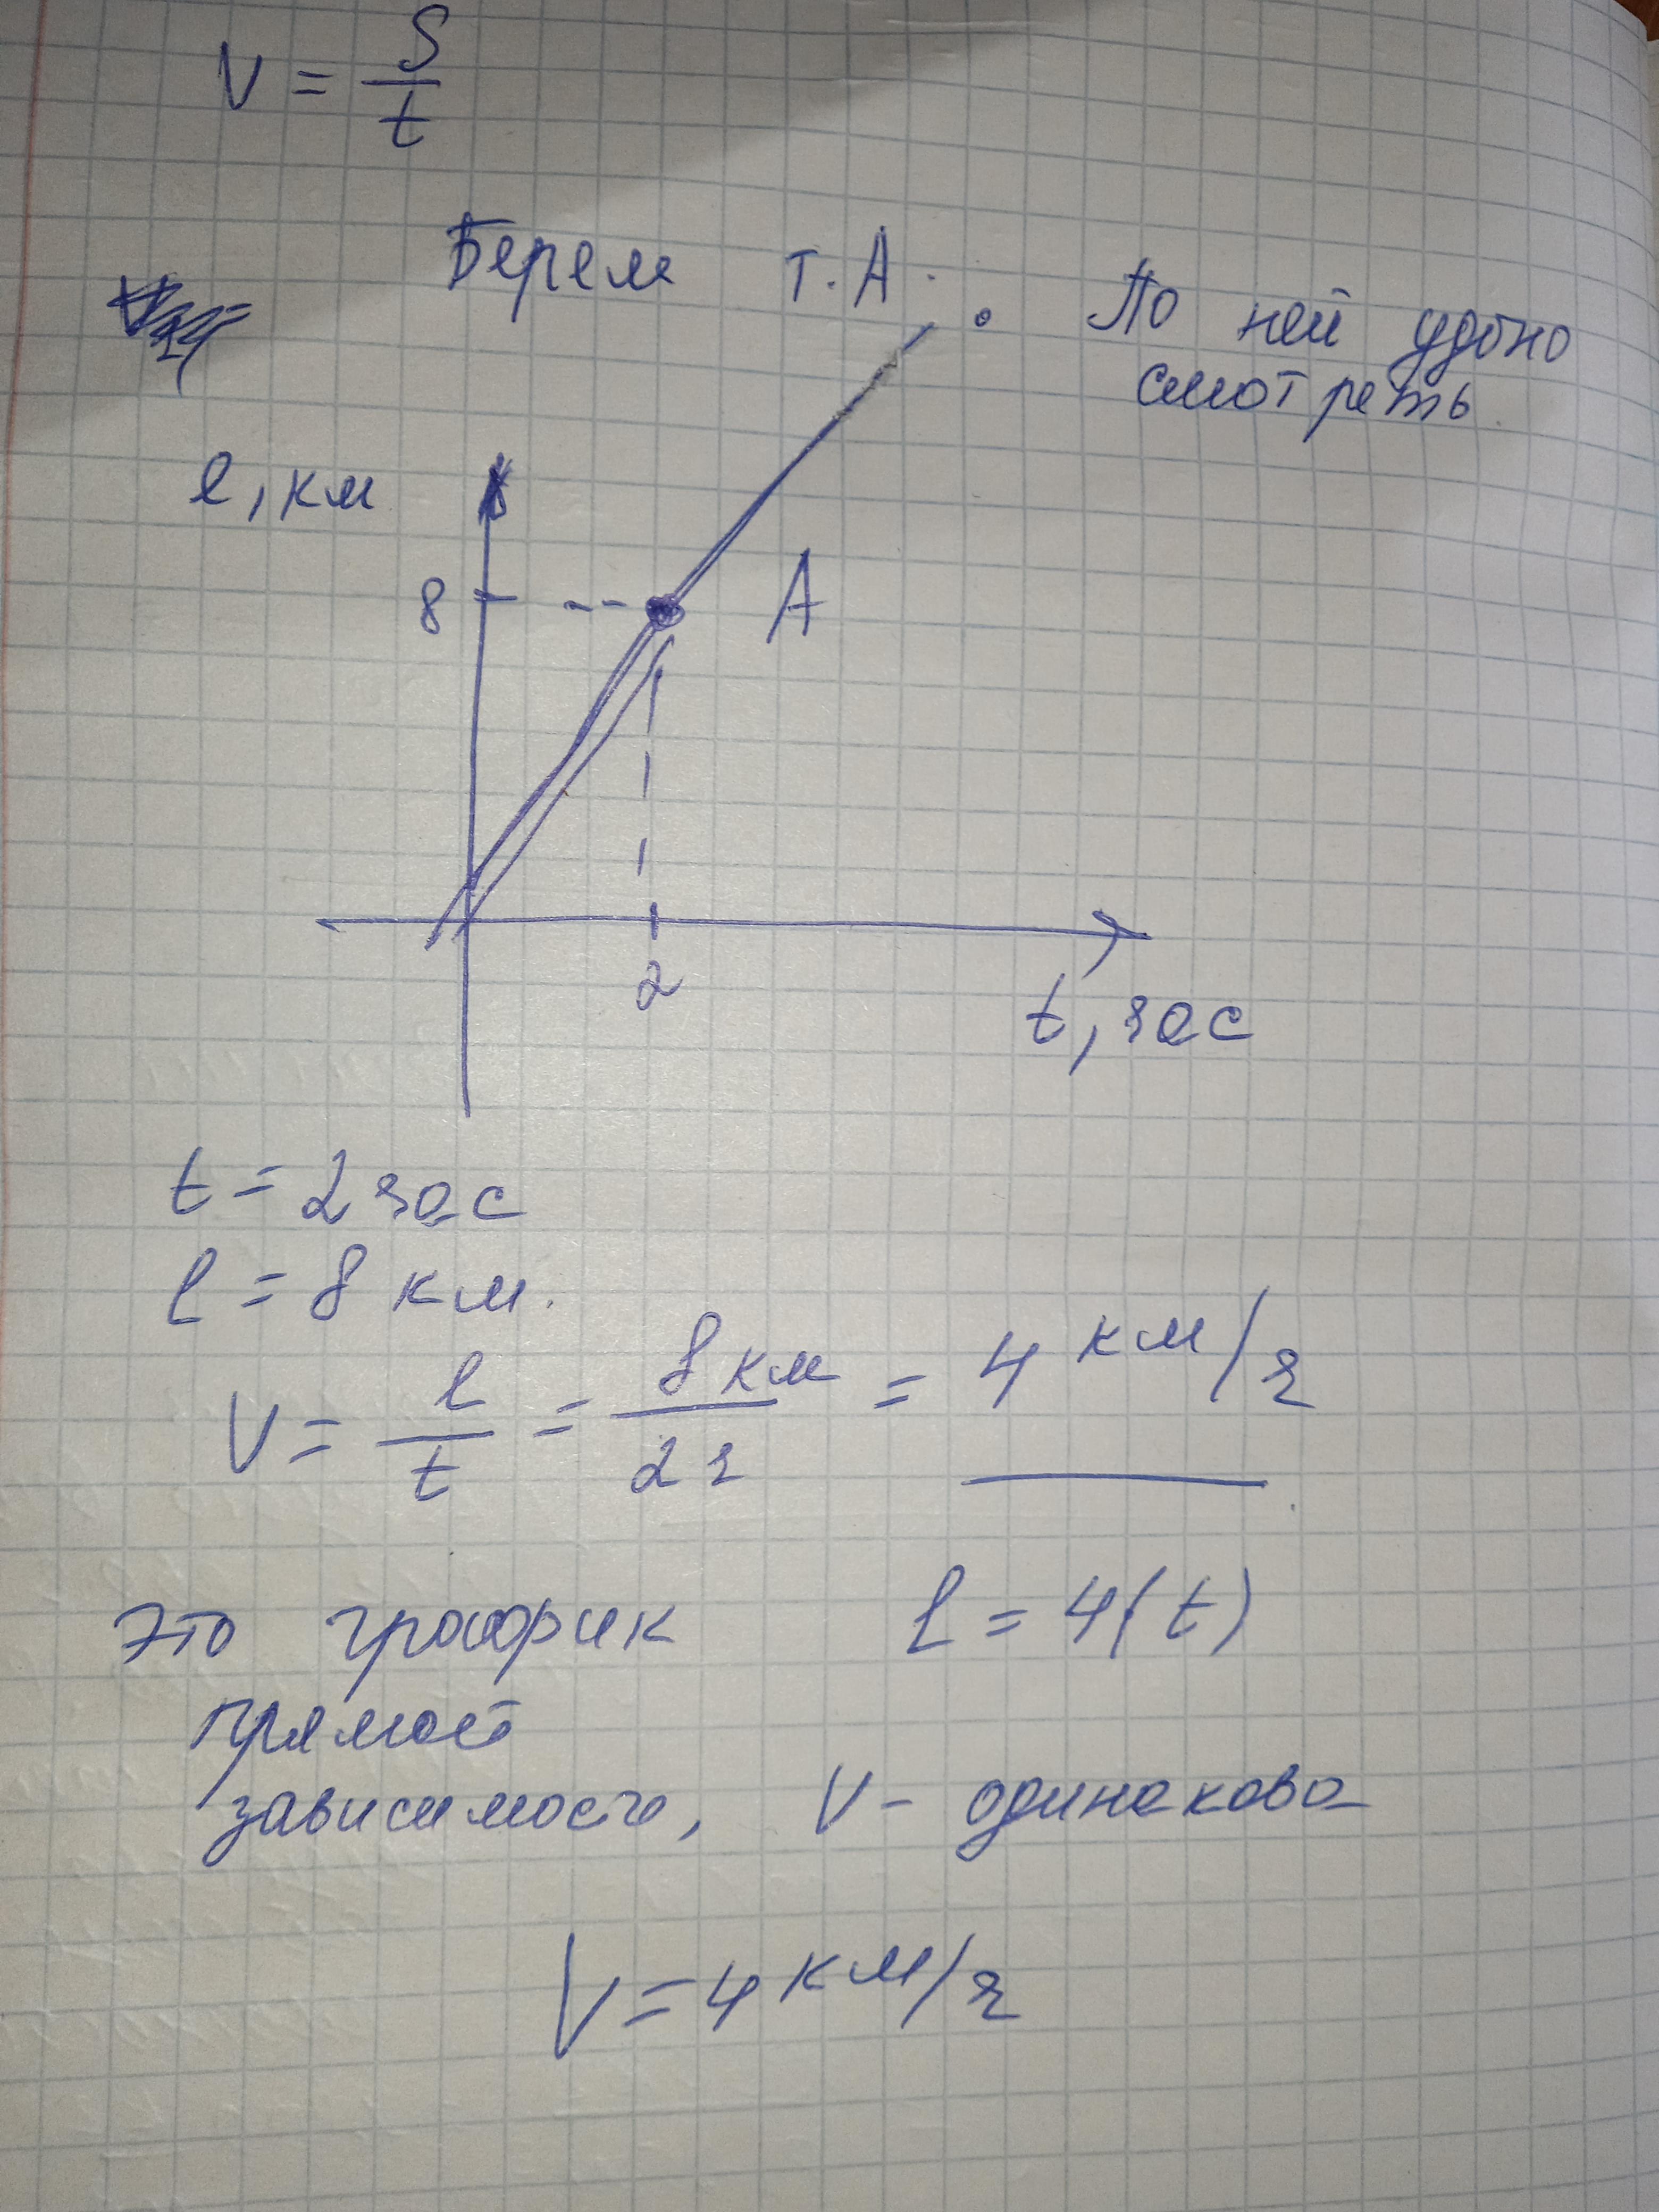 V = S/t
Берем т. А. По ней удобно
смотреть.
l, км
8
А
2
t, час
t = 2 час
l = 8 км.
V = l/t = 8 км/2 ч = 4 км/ч
Это график l = 4(t)
прямой
зависимости, V - одинакова
V = 4 км/ч